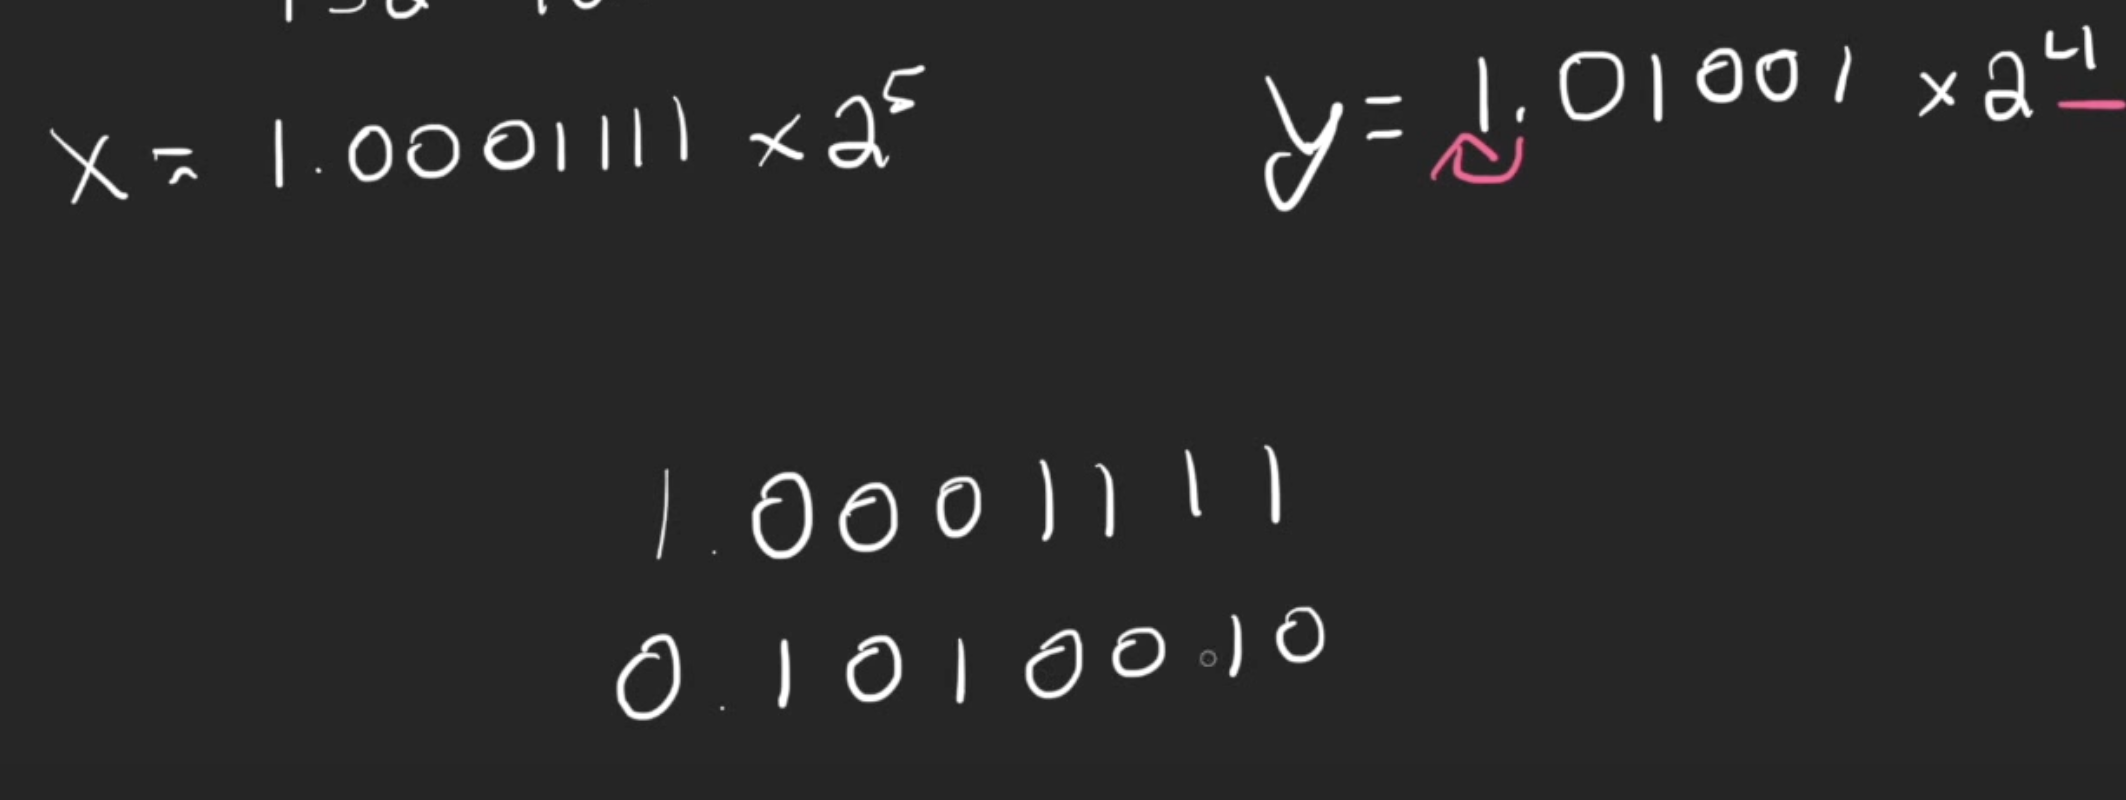 x = 1.0001111 x 2^5
y = 1.01001 x 2^4
1.0001111
0.1010010